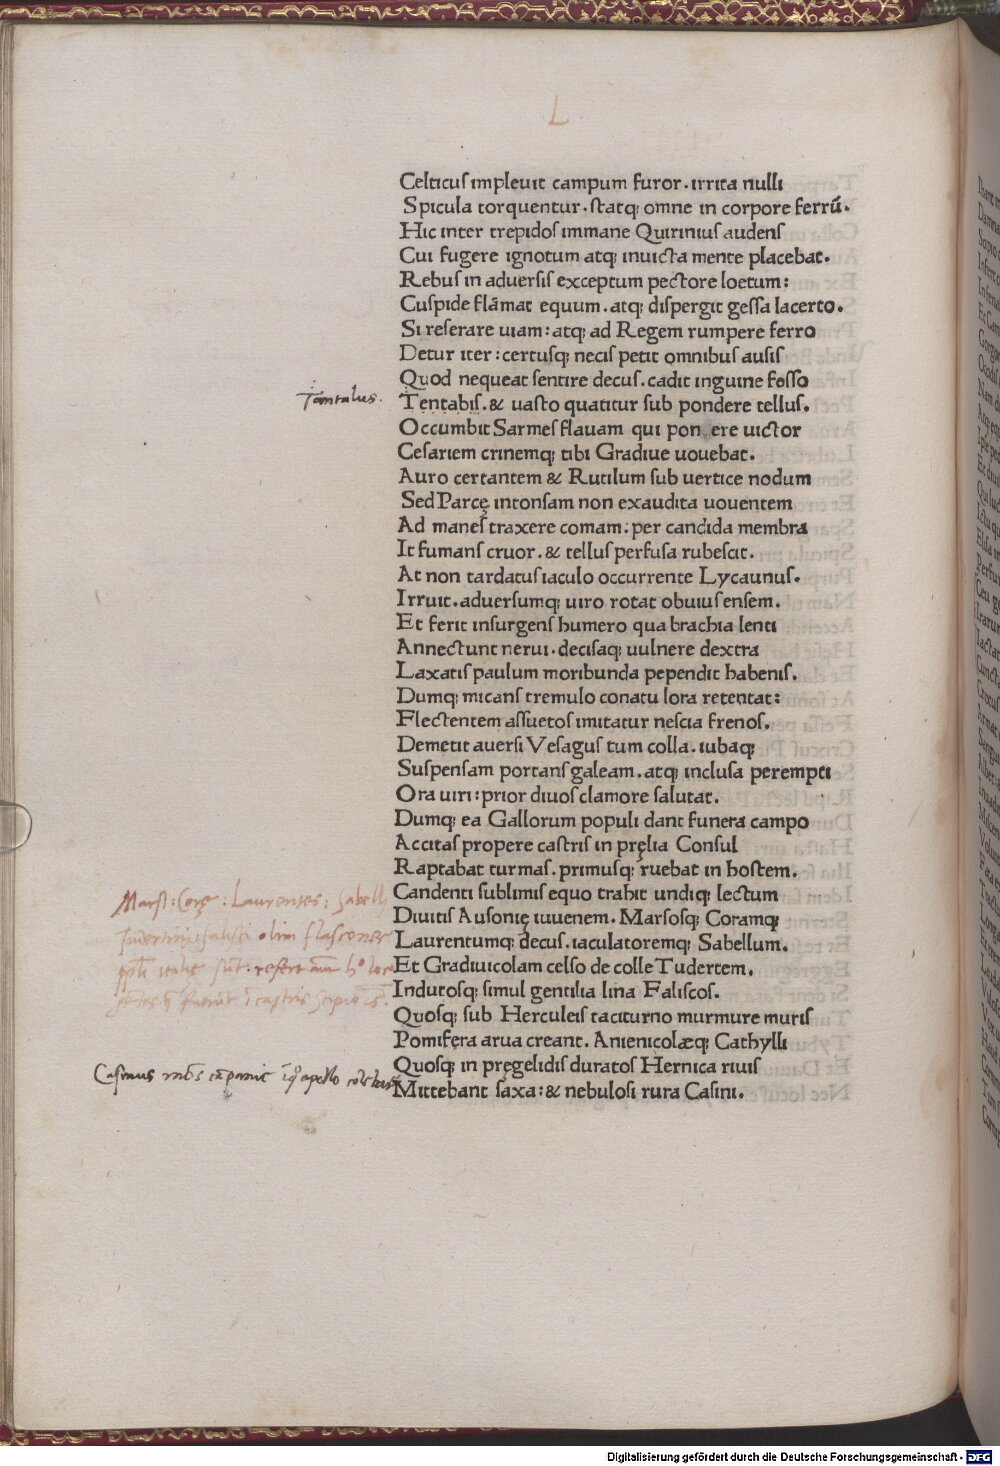 L
Celticus impleuit campum furor. irrita nulli
Spicula torquentur. statq; omne in corpore ferrū.
Hic inter trepidos immane Quirinius audens
Cui fugere ignotum atq; inuicta mente placebat.
Rebus in aduersis exceptum pectore loetum:
Cuspide flāmat equum. atq; dispergit gessa lacerto.
Si reserare uiam: atq; ad Regem rumpere ferro
Detur iter: certusq; necis petit omnibus ausis
Quod nequeat sentire decus. cadit inguine fosso
Tantalus.
Tentabis. & uasto quatitur sub pondere tellus.
Occumbit Sarmes flauam qui ponere uictor
Cesariem crinemq; tibi Gradiue uouebat.
Auro certantem & Rutilum sub uertice nodum
Sed Parcę intonsam non exaudita uouentem
Ad manes traxere comam: per candida membra
It fumans cruor. & tellus perfusa rubescit.
At non tardatus iaculo occurrente Lycaunus.
Irruit. aduersumq; uiro rotat obuius ensem.
Et ferit insurgens humero qua brachia lenti
Annectunt nerui. decisaq; uulnere dextra
Laxatis paulum moribunda pependit habenis.
Dumq; micans tremulo conatu lora retentat:
Flectentem assuetos imitatur nescia frenos.
Demetit auersi Vesagus tum colla. iubaq;
Suspensam portans galeam. atq; inclusa perempti
Ora uiri: prior diuos clamore salutat.
Dumq; ea Gallorum populi dant funera campo
Accitas propere castris in pręlia Consul
Raptabat turmas. primusq; ruebat in hostem.
Candenti sublimis equo trahit undiq; lectum
Diuitis Ausonię iuuenem. Marsosq; Coramq;
Laurentumq; decus. iaculatoremq; Sabellum.
Et Gradiuicolam celso de colle Tudertem.
Indutosq; simul gentilia lina Faliscos.
Quosq; sub Herculeis taciturno murmure muris
Pomifera arua creant. Anienicolæq; Cathylli
Quosq; in pręgelidis duratos Hernica riuis
Mittebant saxa: & nebulosi rura Casini.
Marsi: Corę: Laurentes: Sabelli
Tudertini: falisci olim flascones
Casinus mōs
Digitalisierung gefördert durch die Deutsche Forschungsgemeinschaft - DFG